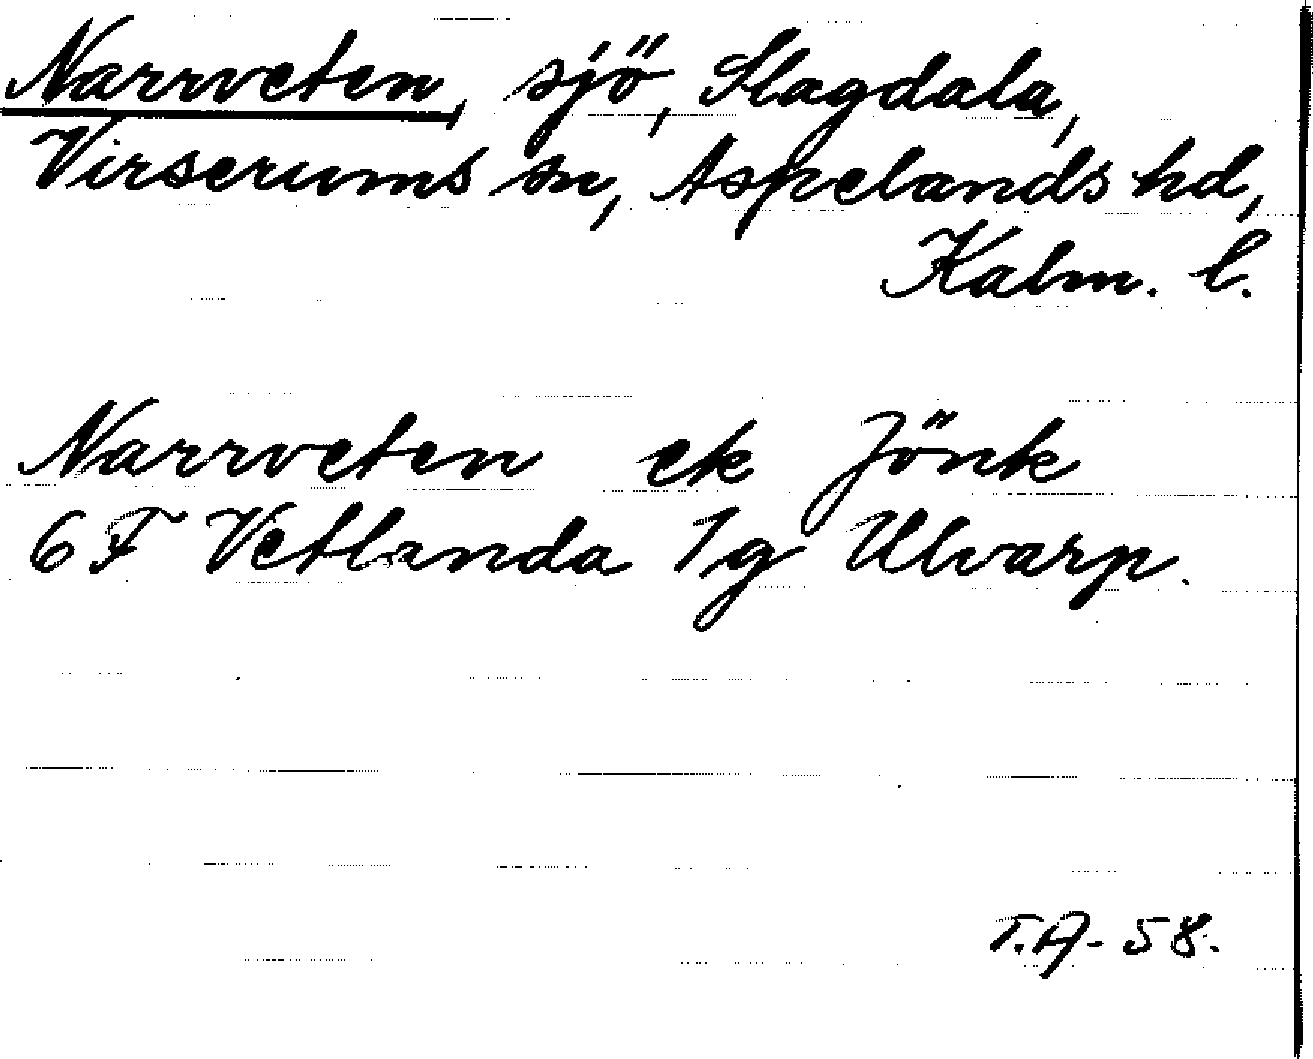 Narrveten, sjö, Slagdala,
Virserums sn, Aspelands hd,
Kalm. l.
Narrveten ek Jönk
6 F Vetlanda 1g Ulvarp.
T.A- 58.